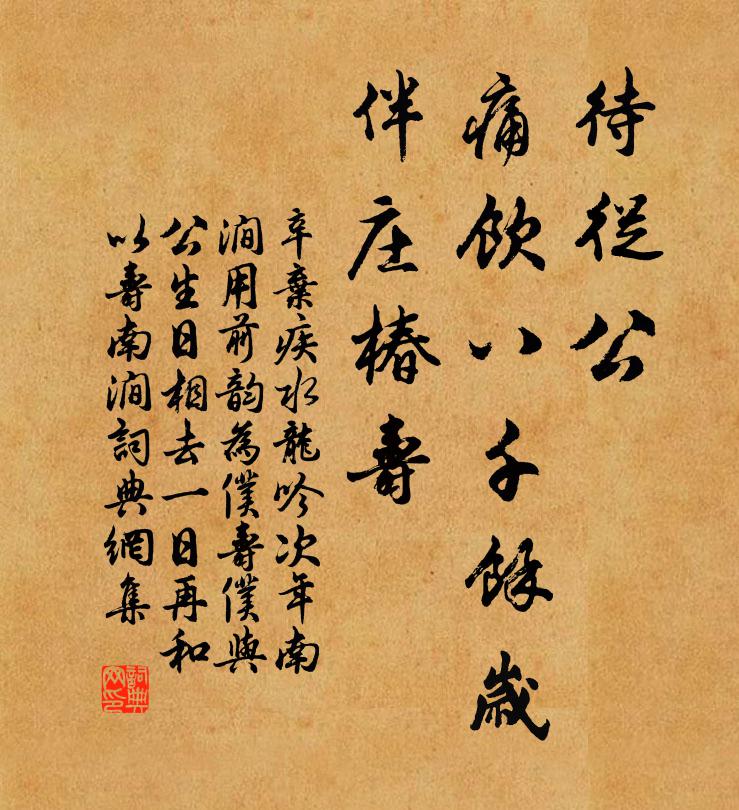 待從公
痛飲八千餘歲
伴庄椿壽
辛棄疾水龍吟次年南
澗用前韵為僕壽僕與
公生日相去一日再和
以壽南澗詞典網集
詞典网印